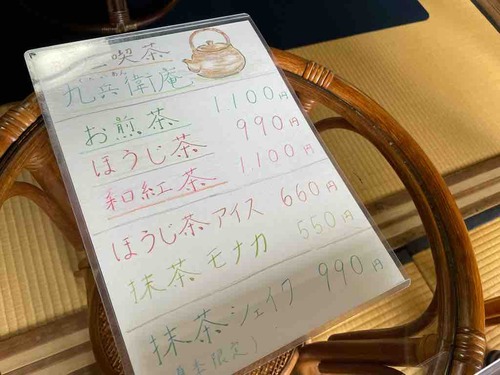 喫茶
九兵衛庵
お煎茶 1100円
ほうじ茶 990円
和紅茶 1,100円
ほうじ茶アイス 660円
抹茶モナカ 550円
抹茶シェイク 990円
限定)